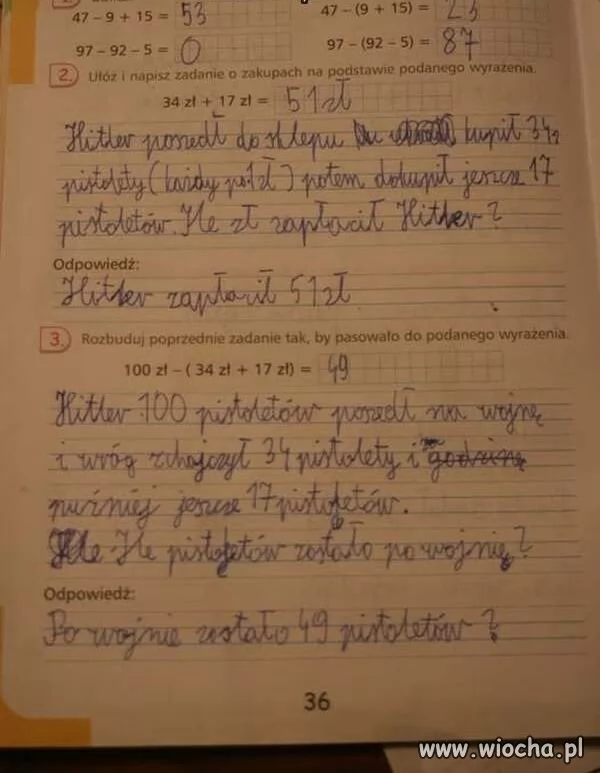 47 – 9 + 15 = 53 47 – (9 + 15) = 23
97 – 92 – 5 = 0 97 – (92 – 5) = 87
2. Ułóż i napisz zadanie o zakupach na podstawie podanego wyrażenia.
34 zł + 17 zł = 51 zł
Hitler poszedł do sklepu kupił 34
pistolety (każdy po 1 zł) potem dokupił jeszcze 17
pistoletów. Ile zł zapłacił Hitler?
Odpowiedź:
Hitler zapłacił 51 zł
3. Rozbuduj poprzednie zadanie tak, by pasowało do podanego wyrażenia.
100 zł – ( 34 zł + 17 zł) = 49
Hitler 100 pistoletów poszedł na wojnę
i wróg 34 pistolety i
puźniej jeszcze 17 pistoletów.
Ile pistoletów zostało po wojnie?
Odpowiedź:
Po wojnie zostało 49 pistoletów?
36
www.wiocha.pl